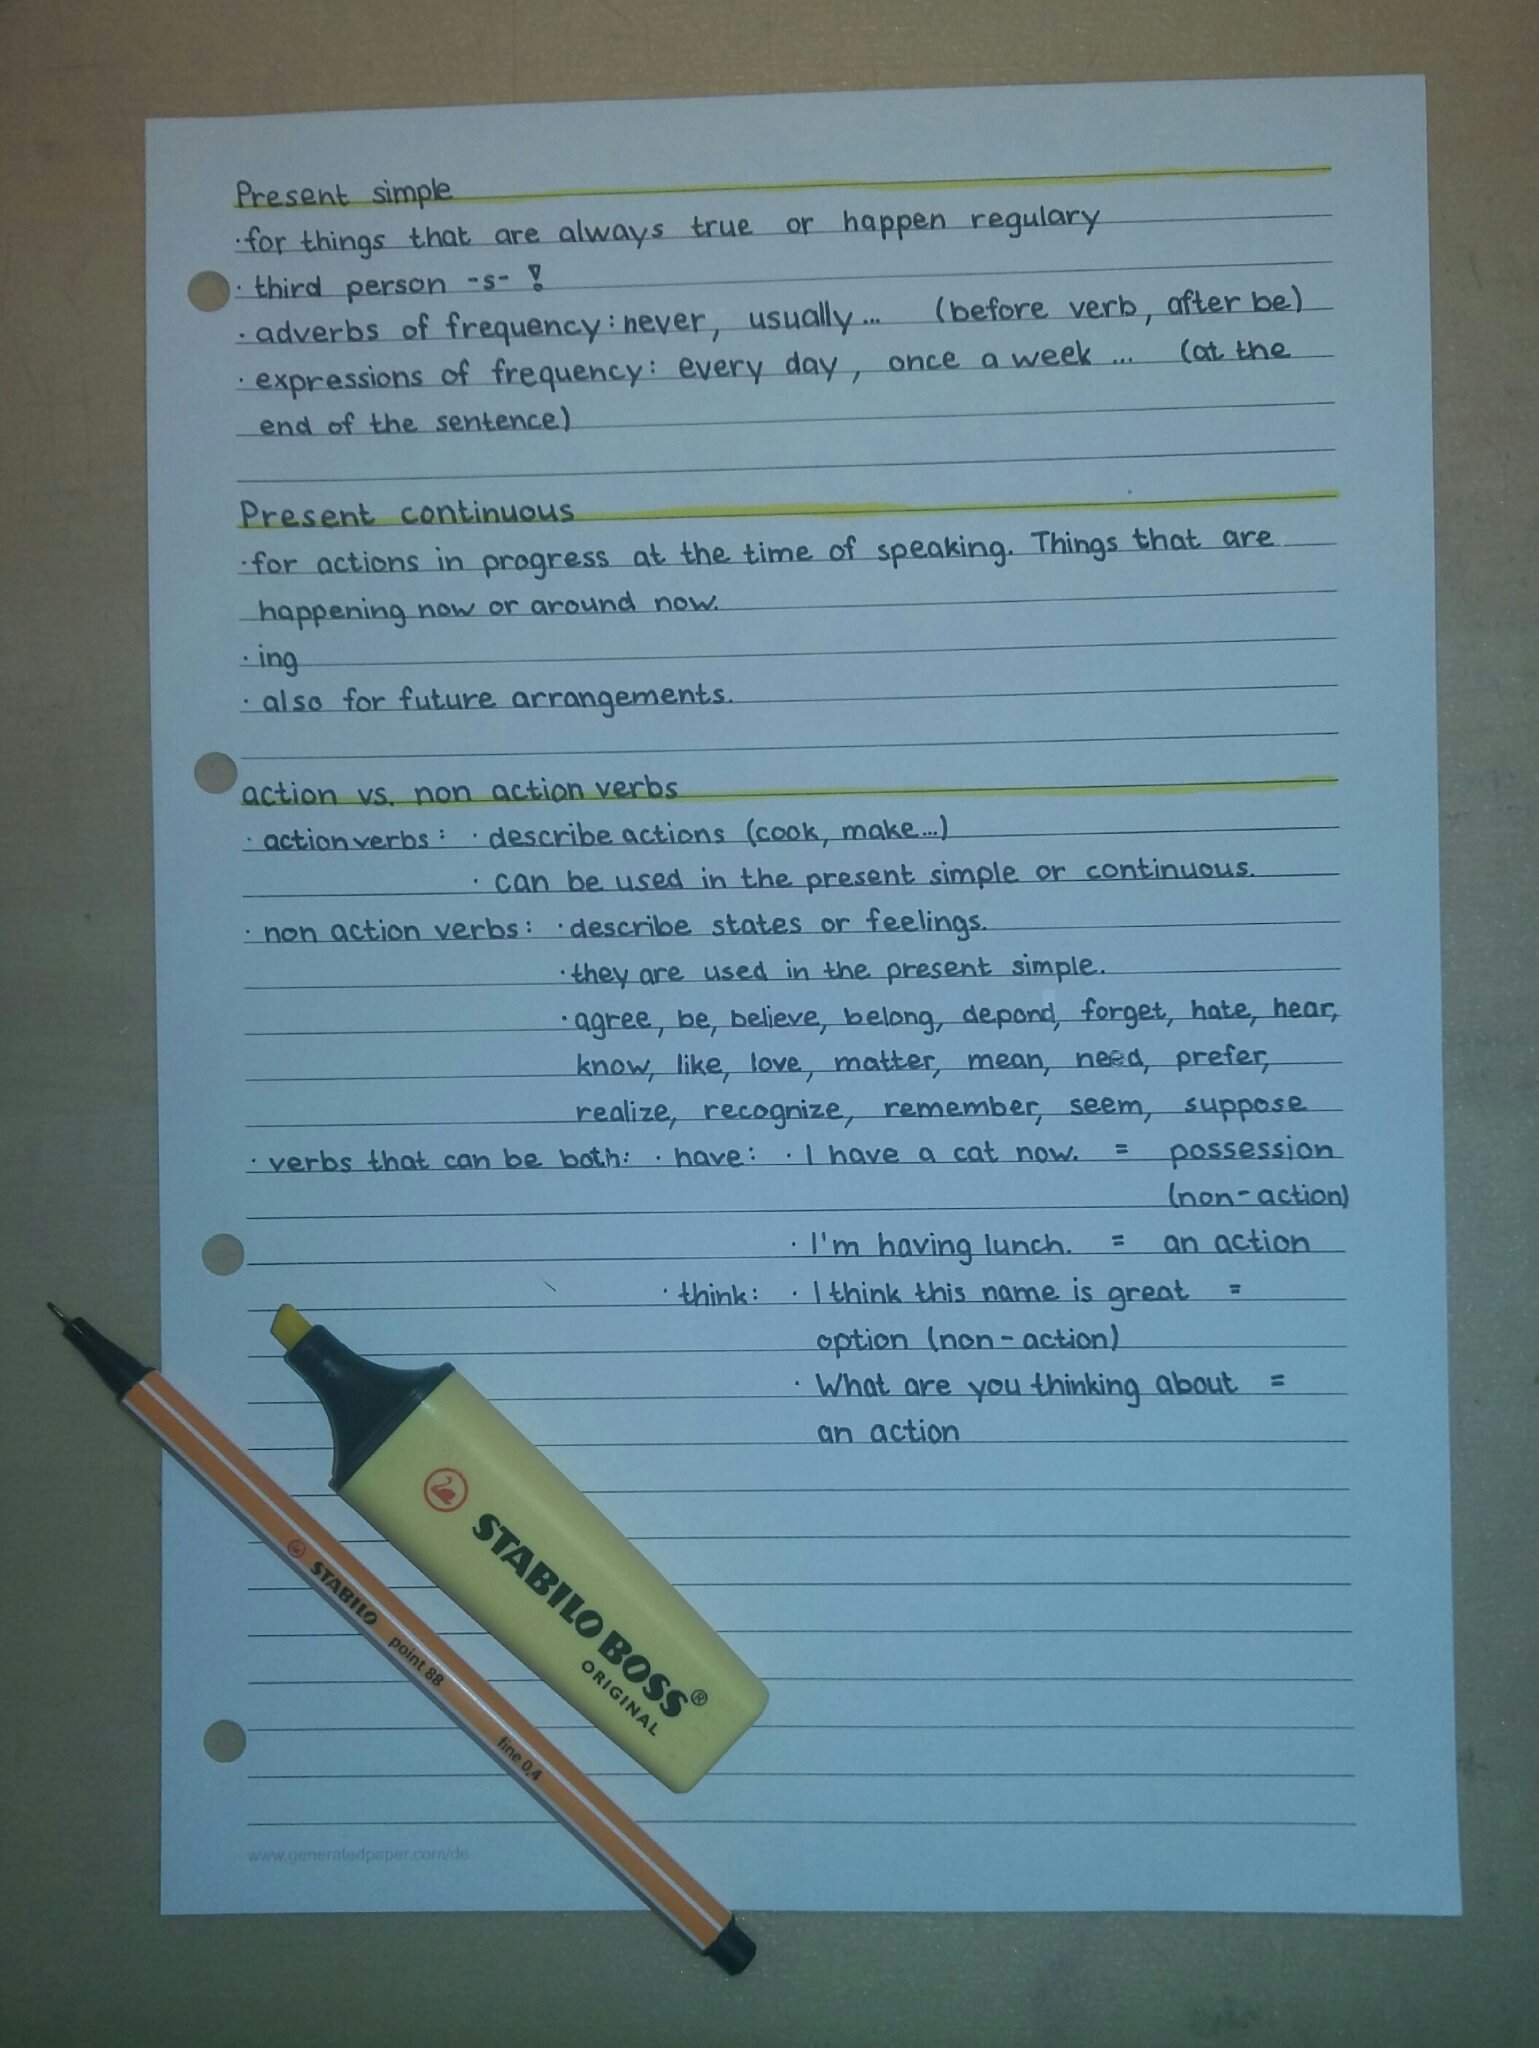 Present simple
·for things that are always true or happen regulary
· third person -s- !
· adverbs of frequency: never, usually... (before verb, after be)
· expressions of frequency: every day, once a week ... (at the
end of the sentence)
Present continuous
·for actions in progress at the time of speaking. Things that are
happening now or around now.
· ing
· also for future arrangements.
action vs. non action verbs
· action verbs: · describe actions (cook, make...)
· can be used in the present simple or continuous.
· non action verbs: ·describe states or feelings.
·they are used in the present simple.
·agree, be, believe, belong, depend, forget, hate, hear,
know, like, love, matter, mean, need, prefer,
realize, recognize, remember, seem, suppose
· verbs that can be both: · have: · I have a cat now. = possession
(non-action)
· I'm having lunch. = an action
· think: · I think this name is great =
option (non-action)
· What are you thinking about =
an action
STABILO BOSS®
ORIGINAL
STABILO point 88 fine 0,4
www.generatedpaper.com/de